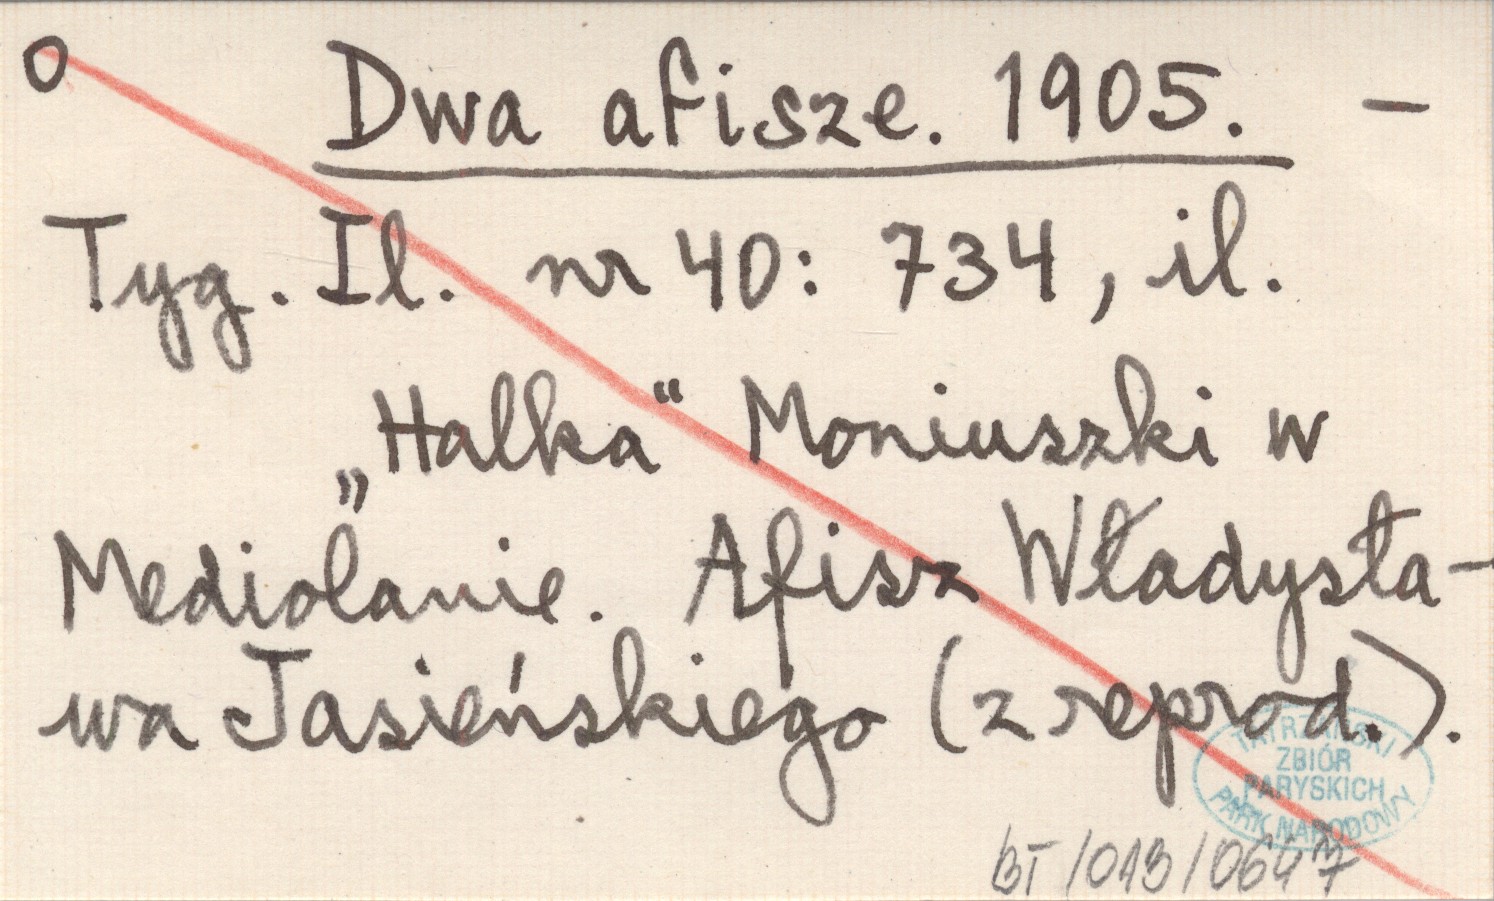 O Dwa afisze. 1905. –
Tyg. Il. nr 40: 734, il.
„Halka" Moniuszki w
Mediolanie. Afisz Władysła-
wa Jasieńskiego (z reprod.).
TATRZAŃSKI
ZBIÓR
PARYSKICH
PARK NARODOWY
BT/013/0647